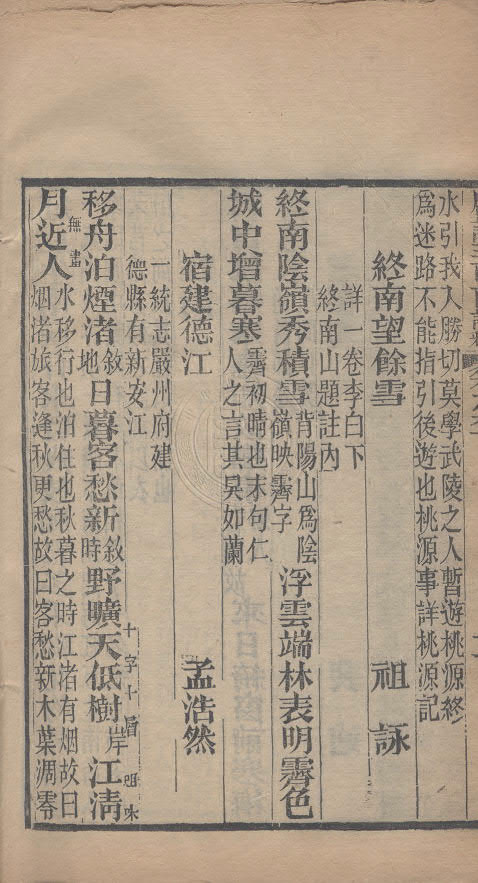 水引我入勝切莫學武陵之人暫遊桃源終
爲迷路不能指引後遊也桃源事詳桃源記
終南望餘雪 祖詠
詳一卷李白下
終南山題註內
終南陰嶺秀積雪背陽山爲陰嶺映霽字浮雲端林表明霽色
城中增暮寒霽初晴也末句仁人之言其臭如蘭
宿建德江 孟浩然
一統志嚴州府建
德縣有新安江
移舟泊煙渚敘地日暮客愁新敘時野曠天低樹岸江淸
月近人無盡水移行也泊住也秋暮之時江渚有烟故曰烟渚旅客逢秋更愁故曰客愁新木葉凋零